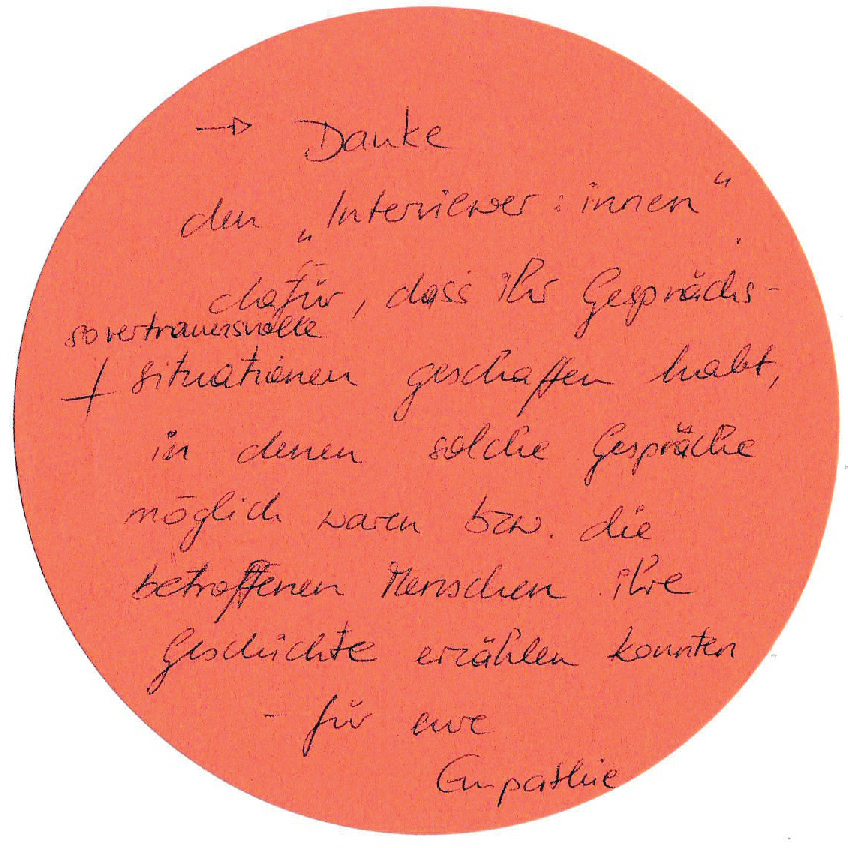 → Danke
den „Interviewer:innen"
dafür, dass ihr Gesprächs-
so vertrauensvolle
+ situationen geschaffen habt,
in denen solche Gespräche
möglich waren bzw. die
betroffenen Menschen ihre
Geschichte erzählen konnten
- für eure
Empathie